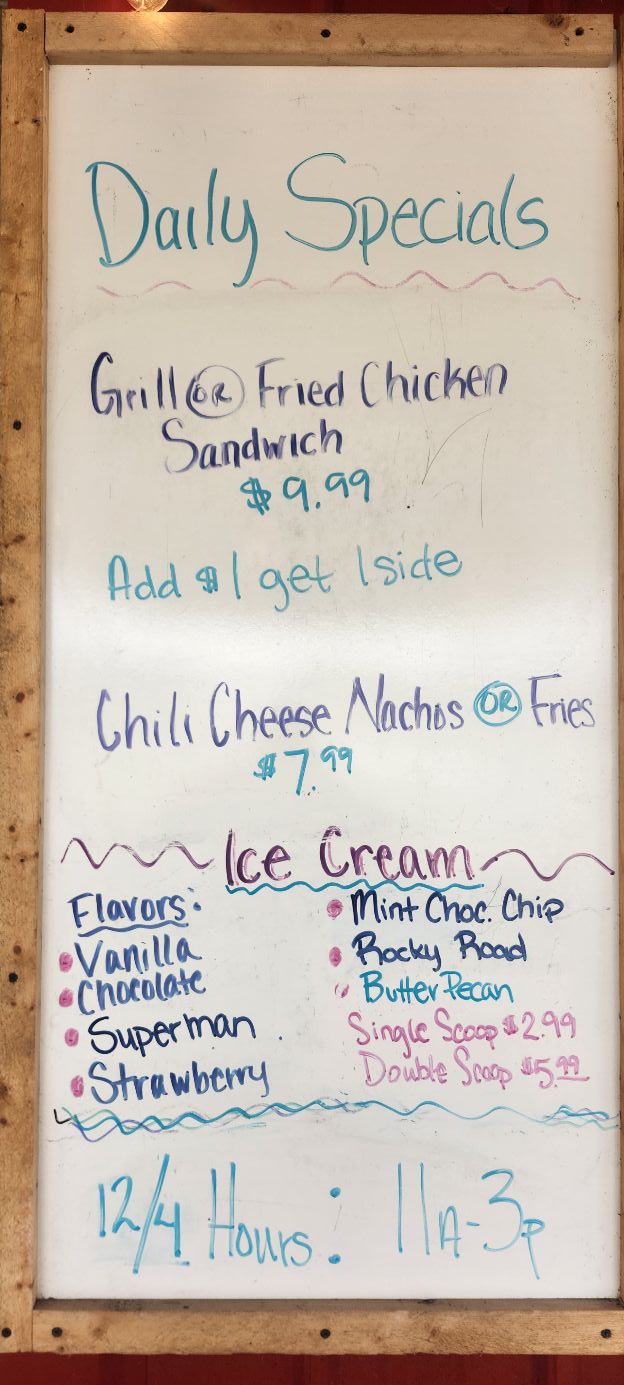 Daily Specials
Grill OR Fried Chicken
Sandwich
$9.99
Add $1 get 1 side
Chili Cheese Nachos OR Fries
$7.99
Ice Cream
Flavors:
Vanilla
Chocolate
Superman
Strawberry
Mint Choc. Chip
Rocky Road
Butter Pecan
Single Scoop $2.99
Double Scoop $5.99
12/4 Hours: 11A-3p